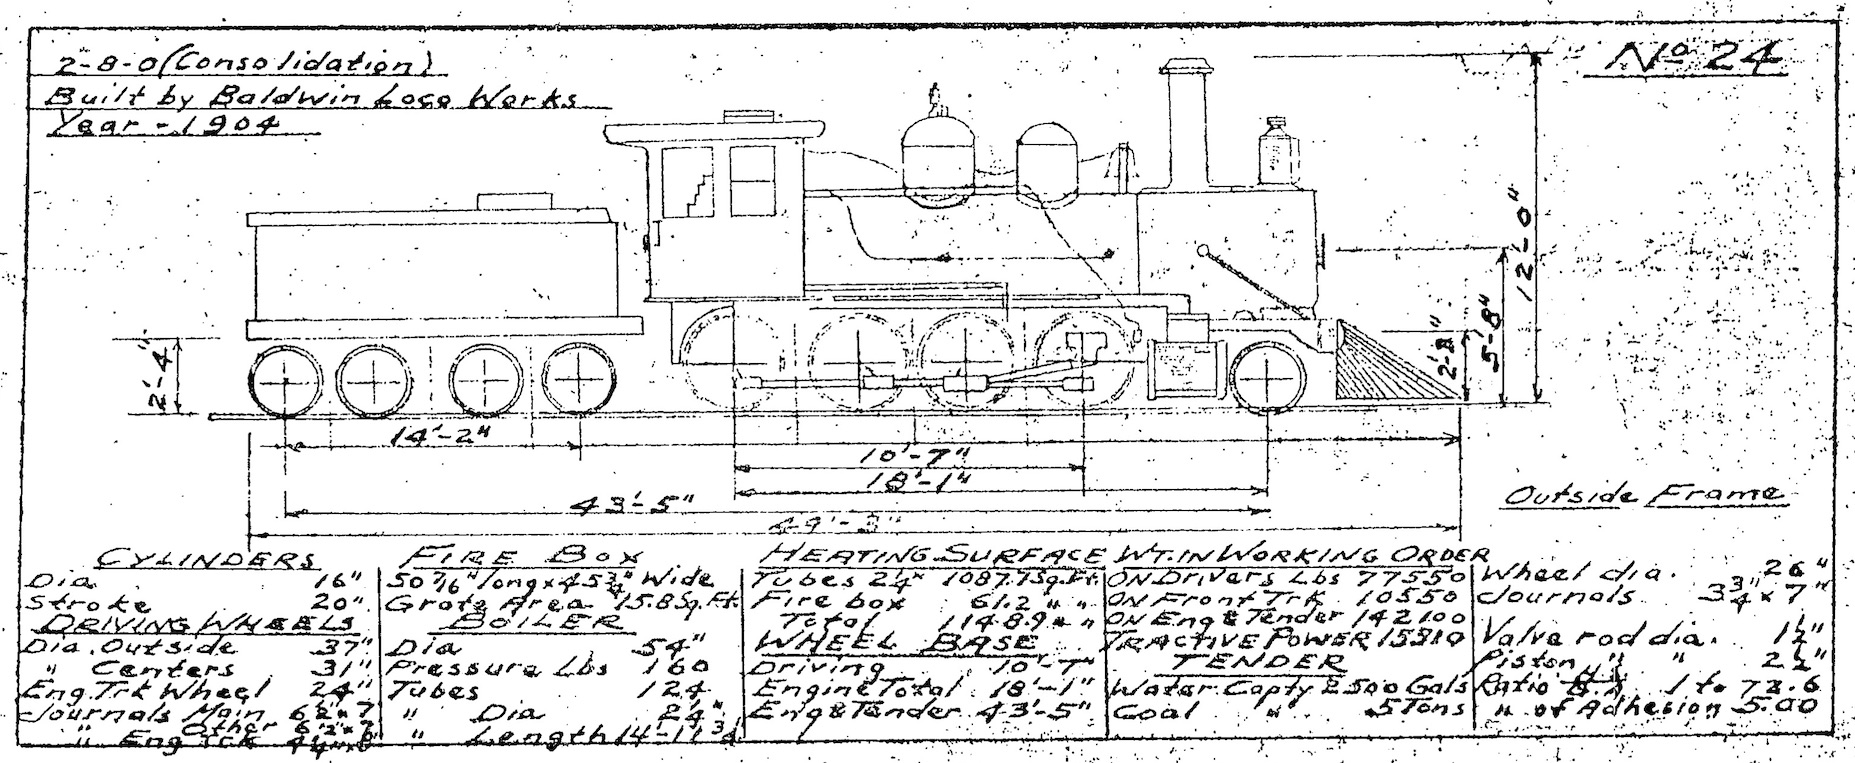 2-8-0 (Consolidation)
Built by Baldwin Loco Works
Year - 1904
Nº 24
12'-0"
5'-8"
2'-8"
2'-4"
14'-2"
10'-7"
18'-1"
43'-5"
Outside Frame
CYLINDERS
Dia 16"
Stroke 20"
DRIVING WHEELS
Dia. Outside 37"
" Centers 31"
Eng. Trk Wheel 24"
Journals Main
" Other
" Eng Trk
FIRE BOX
50 7/16" long x 45 3/4" Wide
Grate Area 15.8 Sq. Ft.
BOILER
Dia 54"
Pressure Lbs 160
Tubes 124
" Dia 2 1/4"
" Length 14'-11 3/4
HEATING SURFACE
Tubes 2 1/4" 1087.7 Sq. Ft.
Fire box 61.2 " "
Total 1148.9 " "
WHEEL BASE
Driving 10'-7"
Engine Total 18'-1"
Eng & Tender 43'-5"
WT. IN WORKING ORDER
ON Drivers Lbs 77550
ON Front Trk 10550
ON Eng & Tender 142100
TRACTIVE POWER
TENDER
Water Capty 2500 Gals
Coal " 5 Tons
Wheel dia. 26"
Journals 3 3/4 x 7"
Valve rod dia. 1 1/2"
Piston " " 2 1/2"
Ratio 1 to 72.6
" of Adhesion 5.00